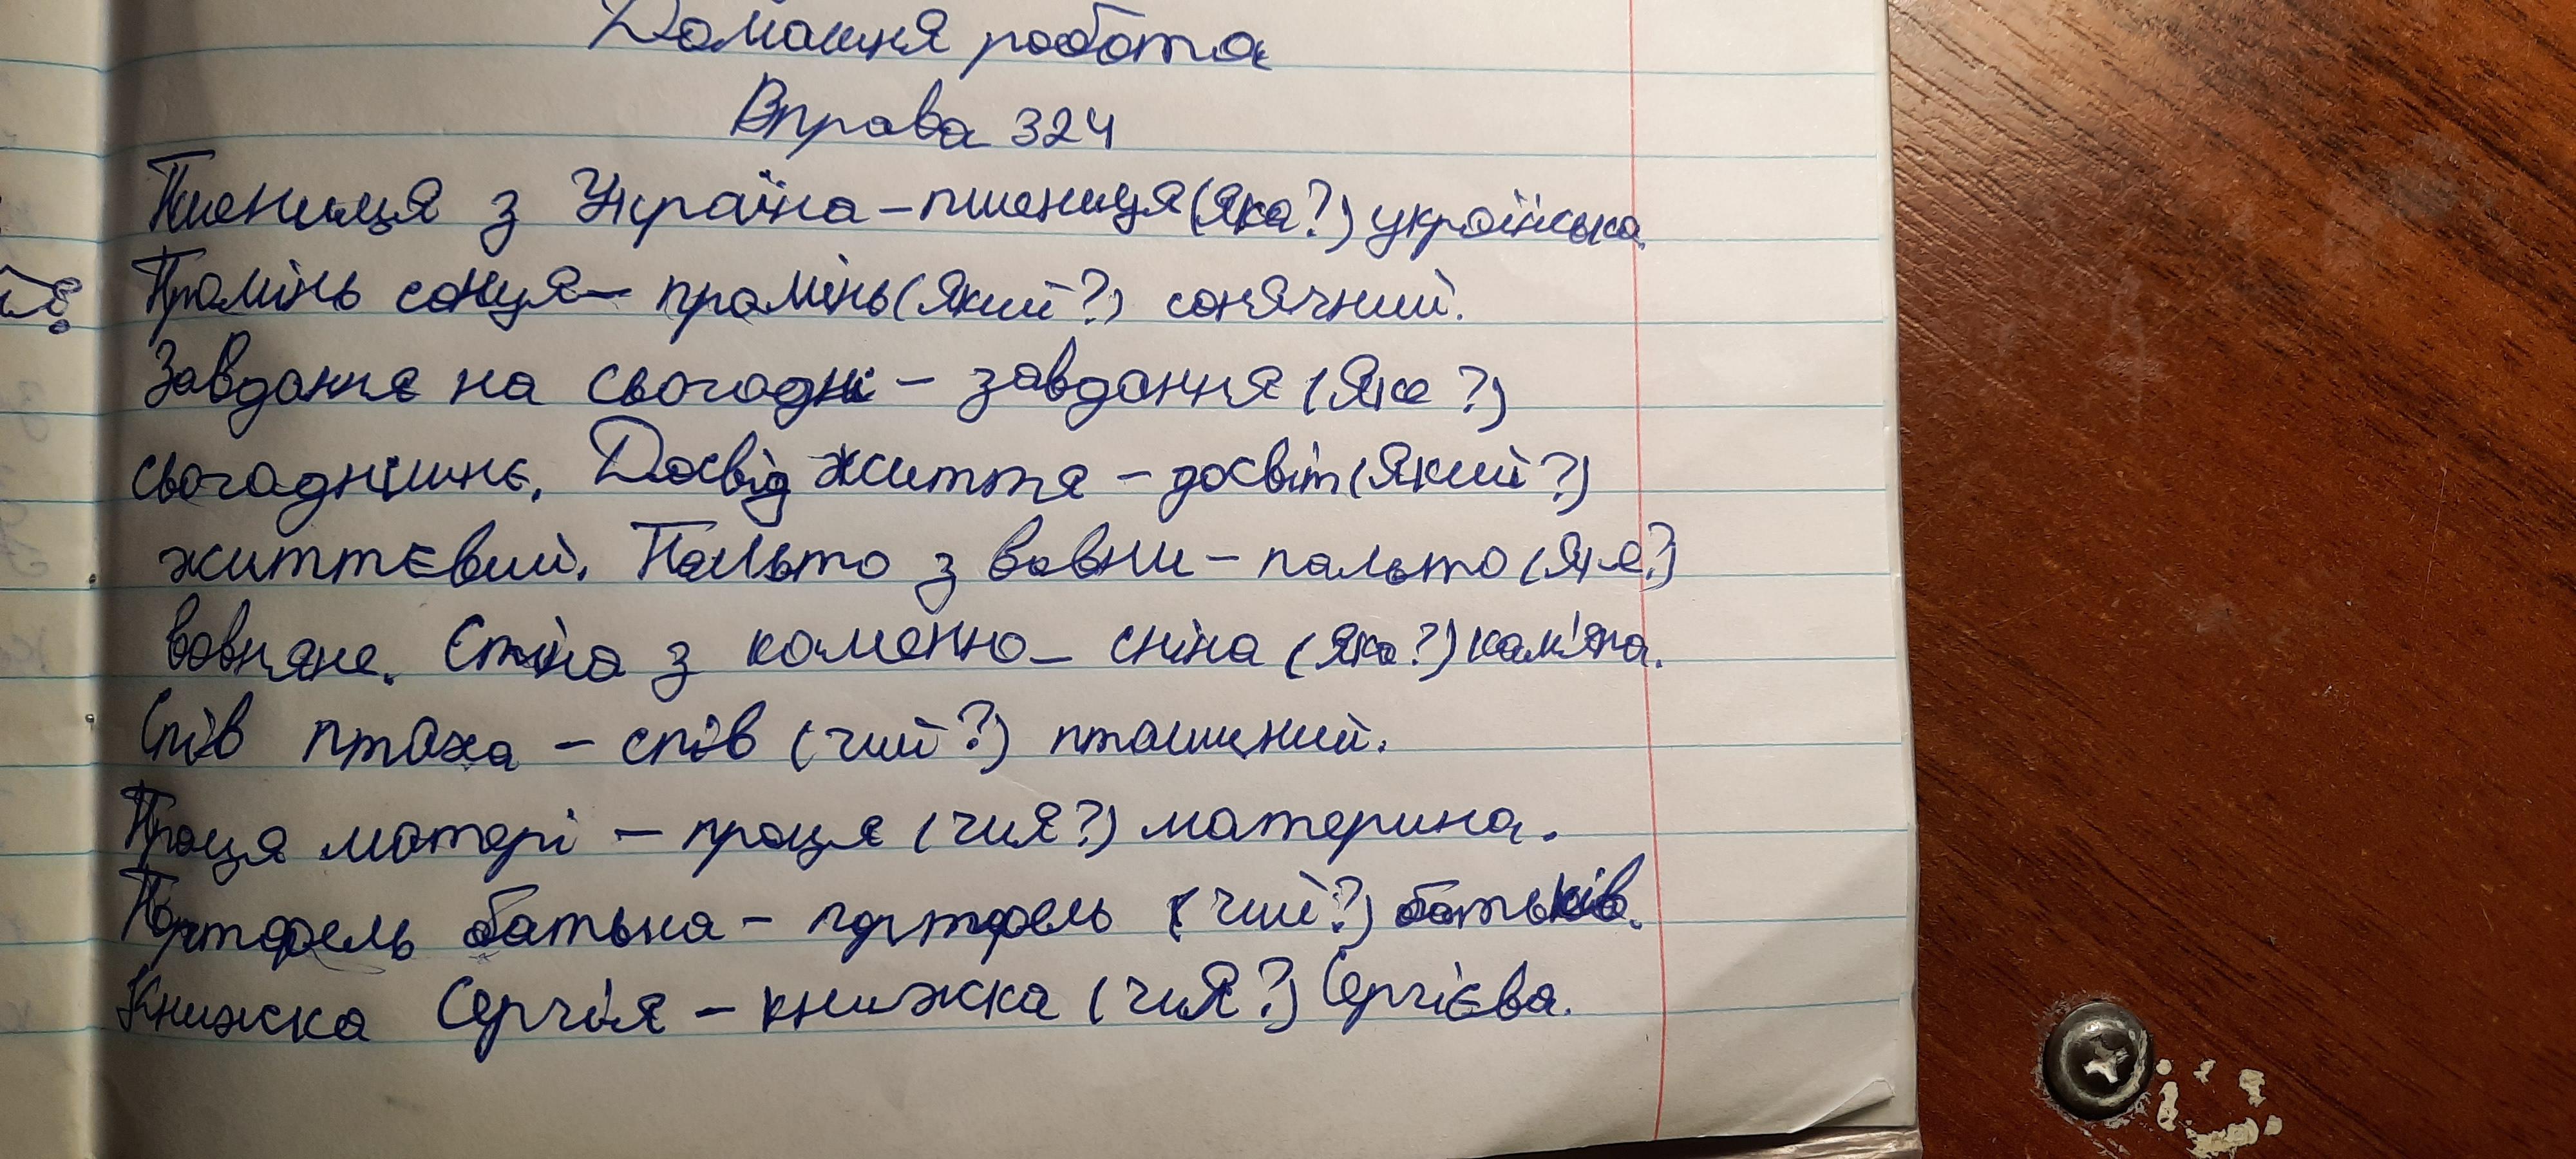 Домашня робота
Вправа 324
Пшениця з Україна – пшениця (яка?) українська.
Промінь сонця – промінь (який?) сонячний.
Завдання на сьогодні – завдання (яке?)
сьогоднішнє. Досвід життя – досвіт (який?)
життєвий. Пальто з вовни – пальто (яке?)
вовняне. Стіна з каменю – сніна (яка?) кам'яна.
Спів птаха – спів (чий?) пташиний.
Праця матері – праця (чия?) материна.
Портфель батька – портфель (чий?) батьків.
Книжка Сергія – книжка (чия?) Сергієва.